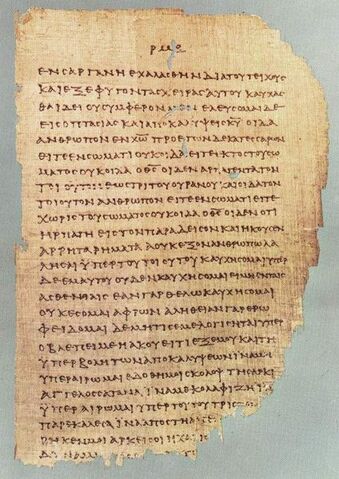 ΕΝ ϹΑΡΓΑΝΗ ΕΧΑΛΑϹΘΗΝ ΔΙΑ ΤΟΥ ΤΕΙΧΟΥϹ
ΚΑΙ ΕΞΕΦΥΓΟΝ ΤΑϹ ΧΕΙΡΑϹ ΑΥΤΟΥ ΚΑΥΧΑϹ
ΘΑΙ ΔΕΙ ΟΥ ϹΥΜΦΕΡΟΝ ΜΕΝ ΕΛΕΥϹΟΜΑΙ ΔΕ
ΕΙϹ ΟΠΤΑϹΙΑϹ ΚΑΙ ΑΠΟΚΑΛΥΨΕΙϹ Κ̅Υ̅ ΟΙΔΑ
ΑΝΘΡΩΠΟΝ ΕΝ Χ̅Ρ̅Ω̅ ΠΡΟ ΕΤΩΝ ΔΕΚΑΤΕϹϹΑΡΩΝ
ΕΙΤΕ ΕΝ ϹΩΜΑΤΙ ΟΥΚ ΟΙΔΑ ΕΙΤΕ ΕΚΤΟϹ ΤΟΥ ϹΩ
ΜΑΤΟϹ ΟΥΚ ΟΙΔΑ Ο Θ̅Ϲ̅ ΟΙΔΕΝ ΑΡΠΑΓΕΝΤΑ ΤΟΝ
ΤΟΙΟΥΤΟΝ ΕΩϹ ΤΡΙΤΟΥ ΟΥΡΑΝΟΥ ΚΑΙ ΟΙΔΑ ΤΟΝ
ΤΟΙΟΥΤΟΝ ΑΝΘΡΩΠΟΝ ΕΙΤΕ ΕΝ ϹΩΜΑΤΙ ΕΙΤΕ
ΧΩΡΙϹ ΤΟΥ ϹΩΜΑΤΟϹ ΟΥΚ ΟΙΔΑ Ο Θ̅Ϲ̅ ΟΙΔΕΝ ΟΤΙ
ΗΡΠΑΓΗ ΕΙϹ ΤΟΝ ΠΑΡΑΔΕΙϹΟΝ ΚΑΙ ΗΚΟΥϹΕΝ
ΑΡΡΗΤΑ ΡΗΜΑΤΑ Α ΟΥΚ ΕΞΟΝ ΑΝΘΡΩΠΩ ΛΑ
ΛΗϹΑΙ ΫΠΕΡ ΤΟΥ ΤΟΙΟΥΤΟΥ ΚΑΥΧΗϹΟΜΑΙ ΫΠΕΡ
ΔΕ ΕΜΑΥΤΟΥ ΟΥΔΕΝ ΚΑΥΧΗϹΟΜΑΙ ΕΙ ΜΗ ΕΝ ΤΑΙϹ
ΑϹΘΕΝΕΙΑΙϹ ΕΑΝ ΓΑΡ ΘΕΛΩ ΚΑΥΧΗϹΟΜΑΙ
ΟΥΚ ΕϹΟΜΑΙ ΑΦΡΩΝ ΑΛΗΘΕΙΑΝ ΓΑΡ ΕΡΩ
ΦΕΙΔΟΜΑΙ ΔΕ ΜΗ ΤΙϹ ΕΜΕ ΛΟΓΙϹΗΤΑΙ ΫΠΕΡ
Ο ΒΛΕΠΕΙ ΜΕ Η ΑΚΟΥΕΙ ΤΙ ΕΞ ΕΜΟΥ ΚΑΙ ΤΗ
ΫΠΕΡΒΟΛΗ ΤΩΝ ΑΠΟΚΑΛΥΨΕΩΝ ΙΝΑ ΜΗ
ΫΠΕΡΑΙΡΩΜΑΙ ΕΔΟΘΗ ΜΟΙ ϹΚΟΛΟΨ ΤΗ ϹΑΡΚΙ
ΑΓΓΕΛΟϹ ϹΑΤΑΝΑ ΙΝΑ ΜΕ ΚΟΛΑΦΙΖΗ
ΫΠΕΡΑΙΡΩΜΑΙ ΫΠΕΡ ΤΟΥΤΟΥ ΤΡΙϹ
ΠΑΡΕΚΑΛΕϹΑ ΙΝΑ ΑΠΟϹΤΗ
ΜΟΙ ΑΡΚΕΙ ϹΟΙ Η ΧΑΡΙϹ